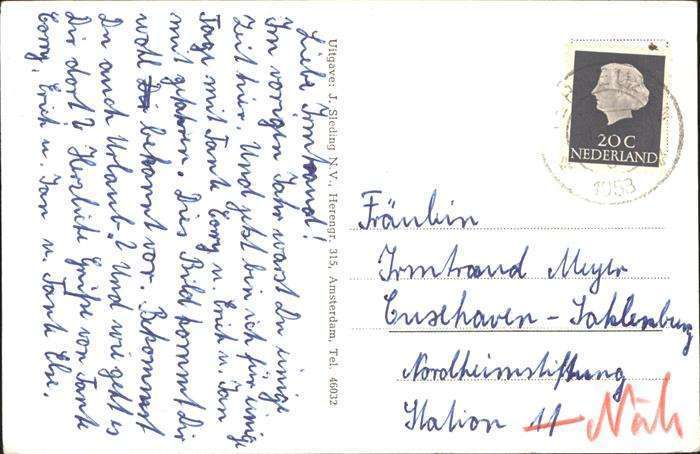 Liebe Irmtraud!
Im vorigen Jahr warst Du einige
Zeit hier. Und jetzt bin ich für einige
Tage mit Tante Corry u. Erich u. Jan
mit gefahren. Dies Bild kommt Dir
wohl bekannt vor. Bekommst
Du auch Urlaub? Und wie geht es
Dir dort? Herzliche Grüße von Tante
Corry, Erich u. Jan u. Tante Else.
Uitgave: J. Sleding N.V., Herengr. 315, Amsterdam, Tel. 46032
20 C
NEDERLAND
1958
Fräulein
Irmtraud Meyer
Cuxhaven - Sahlenburg
Nordheimstiftung
Station 11 Näh